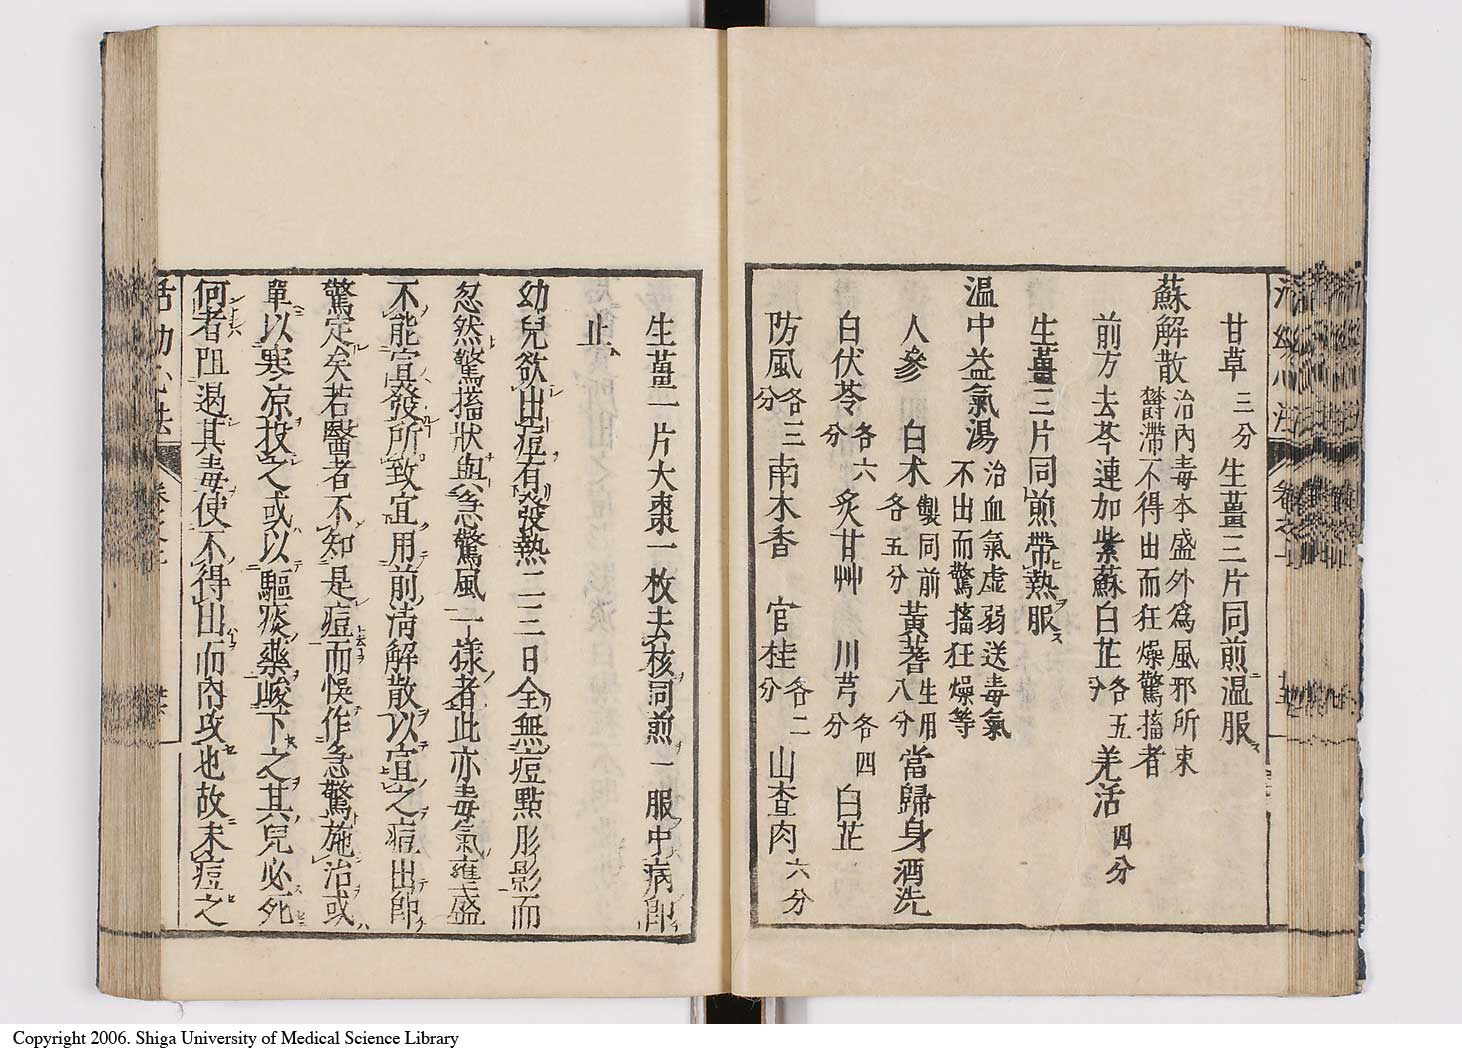 甘草三分生薑三片同煎温服ス
蘇解散治內毒本盛外爲風邪所束
欝滯不得出而狂燥驚搐者
前方去芩連加紫蘇白芷各五分羌活四分
生薑三片同煎帶熱服ス
温中益氣湯治血氣虛弱送毒氣
不出而驚搐狂燥等
人參白朮製同前各五分黃蓍生用八分當歸身酒洗
白伏苓各六分炙甘艸川芎各四分白芷
防風各三分南木香官桂各二分山查肉六分
生薑一片大棗一枚去核同煎一服中病卽
止
幼兒欲出痘有發熱二三日全無痘點形影而
忽然驚搐狀與急驚風一樣者此亦毒氣壅盛
不能宣發所致宜用前清解散以宣之痘出卽
驚定矣若醫者不知是痘而悞作急驚施治或
單以寒凉投之或以驅痰藥峻下之其兒必死
何者阻遏其毒使不得出而內攻也故未痘之
活幼心法 卷之
Copyright 2006. Shiga University of Medical Science Library